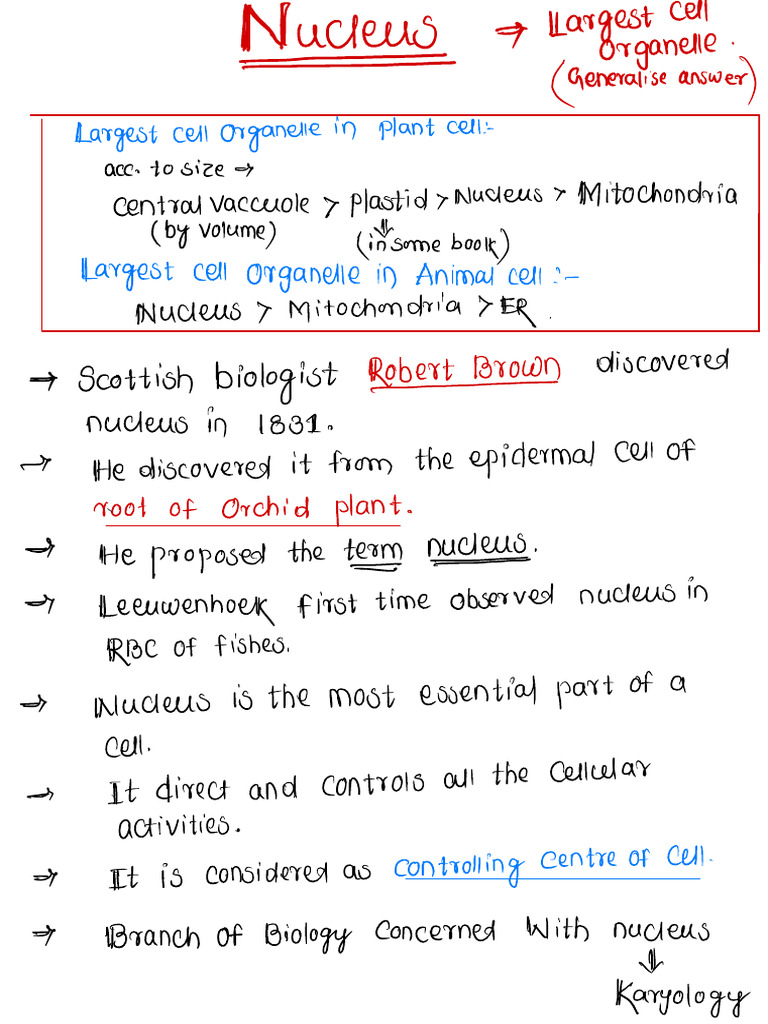 Nucleus → Largest cell
organelle.
(Generalise answer)
Largest cell organelle in plant cell:-
acc. to size →
central vaccuole > plastid > Nucleus > Mitochondria
(by volume) (in some book)
Largest cell organelle in Animal cell:-
Nucleus > Mitochondria > ER.
→ Scottish biologist Robert Brown discovered
nucleus in 1831.
→ He discovered it from the epidermal cell of
root of Orchid plant.
→ He proposed the term nucleus.
→ Leeuwenhoek first time observed nucleus in
RBC of fishes.
→ Nucleus is the most essential part of a
cell.
→ It direct and controls all the cellular
activities.
→ It is considered as controlling centre of cell.
→ Branch of Biology concerned with nucleus
Karyology